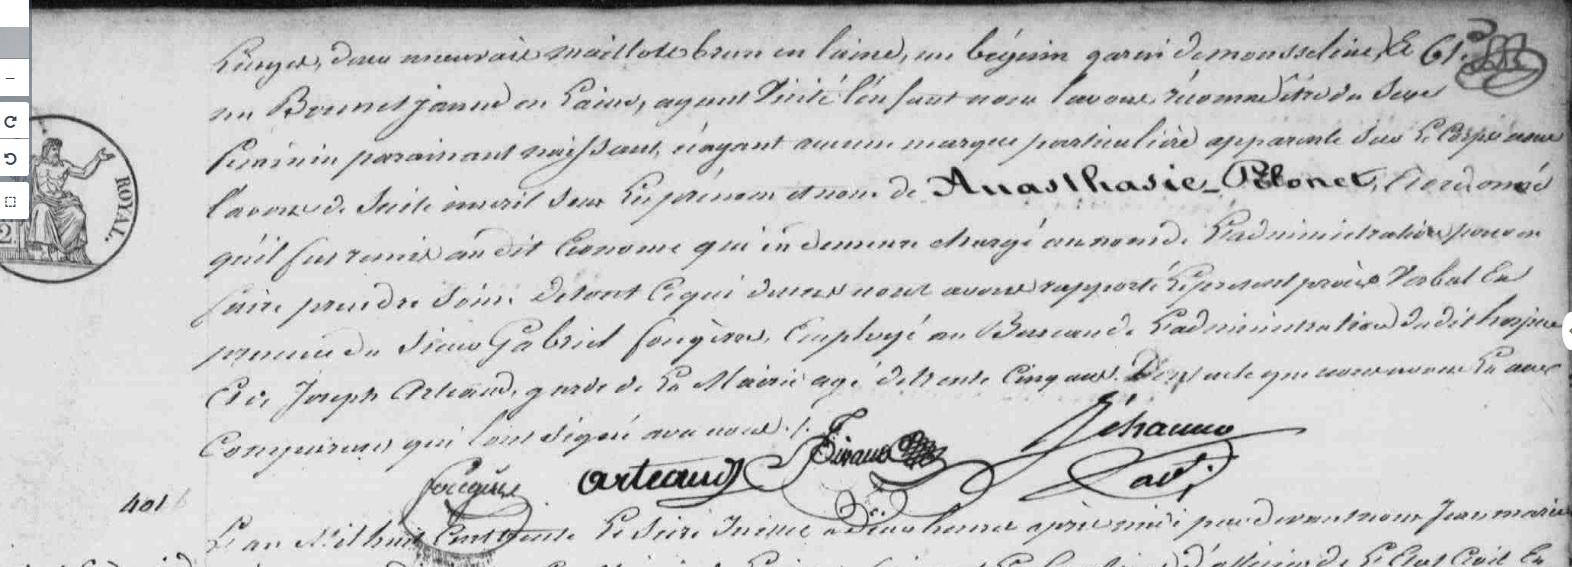 Linges, deux mauvais maillots brun en laine, un béguin garni de mousseline, Et 61.
un Bonnet jaune en Laine, ayant Visité l'enfant nous l'avons reconnu être du Sexe
feminin paraissant naissant, n'ayant aucune marque particulière apparente sur Le Corps nous
l'avons de suite inscrit sous Les prénom et nom de Anasthasie Pelonet,
qu'il fut remis au dit Econome qui en demeure chargé au nom de L'administration pour en
faire prendre Soin. De tout Ce qui dessus nous avons rapporté Le present procès Verbal En
presence du Sieur Gabriel fougères, Employé au Bureau de L'administration dudit hospice
Et de Joseph Arteaud, garde de La Mairie agé de trente Cinq ans. Duquel acte que nous avons Lu aux
Comparans qui l'ont signé avec nous ./.
fougères arteaud
ROYAL.
2
401
L'an Mil huit Cent trente Le Seize Juillet a Deux heures après midi par devant nous Jean marie
de L'Etat Civil En